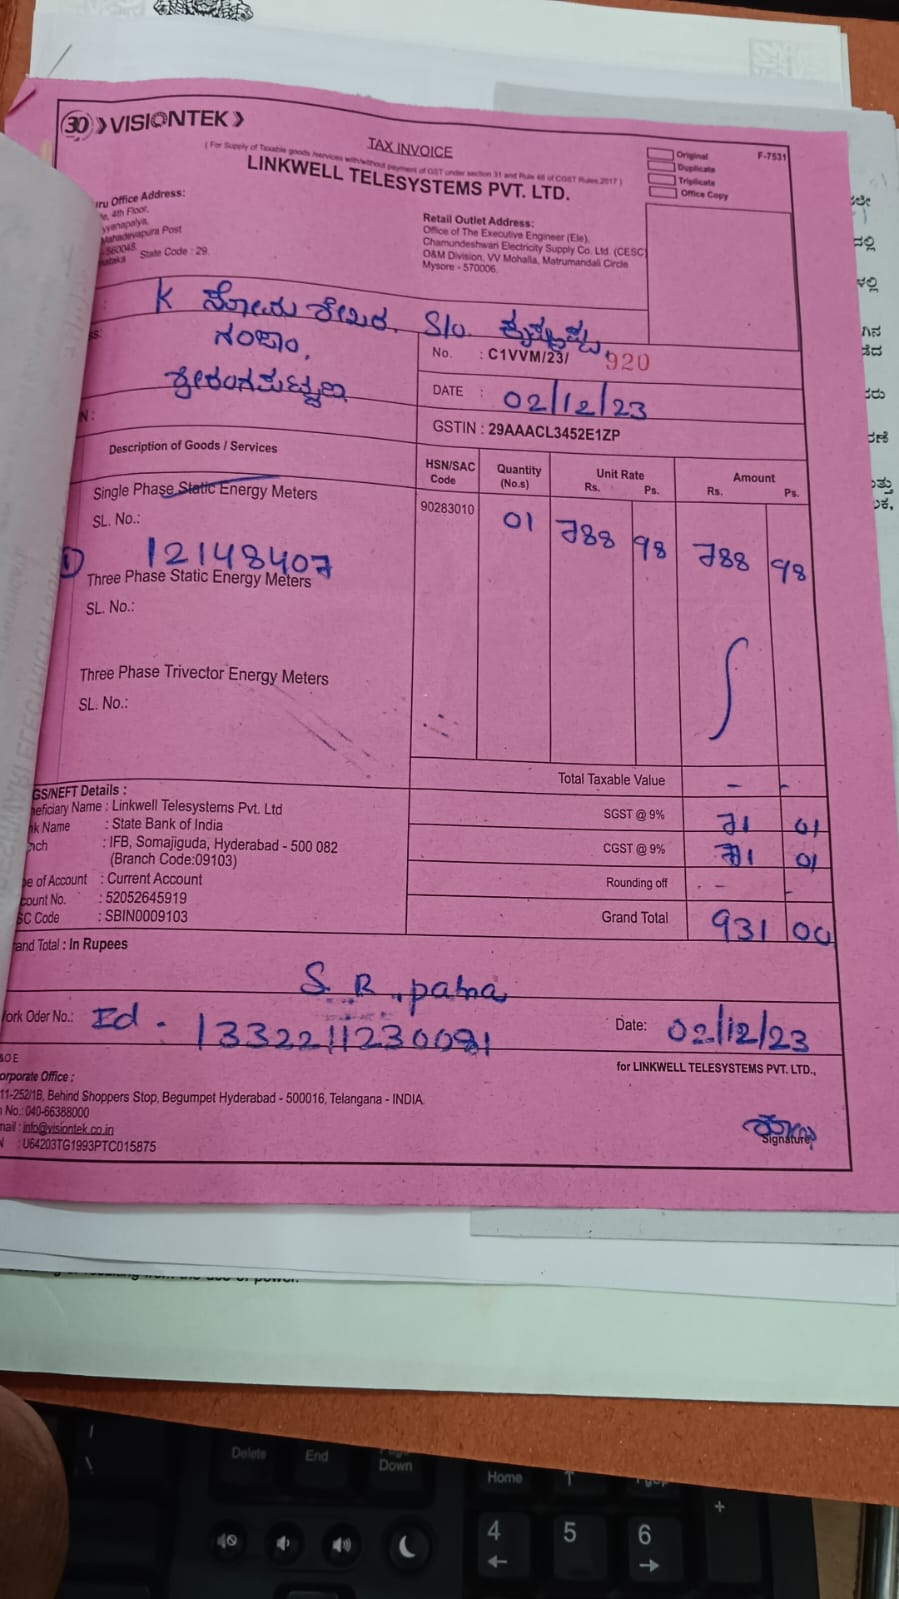 30 VISIONTEK
TAX INVOICE
( For Supply of Taxable goods /services with/without payment of GST under section 31 and Rule 46 of CGST Rules,2017 )
LINKWELL TELESYSTEMS PVT. LTD.
Original
Duplicate
Triplicate
Office Copy
F-7531
Office Address:
4th Floor,
Mahadevapura Post
State Code : 29
Retail Outlet Address:
Office of The Executive Engineer (Ele),
Chamundeshwari Electricity Supply Co. Ltd. (CESC)
O&M Division, VV Mohalla, Matrumandali Circle
Mysore - 570006.
K ಸೋಮಶೇಖರ. S/o.
ಗಂಜಾಂ,
ಶ್ರೀರಂಗಪಟ್ಟಣ
No. : C1VVM/23/ 920
DATE : 02/12/23
GSTIN : 29AAACL3452E1ZP
Description of Goods / Services
HSN/SAC Code
Quantity (No.s)
Unit Rate Rs. Ps.
Amount Rs. Ps.
Single Phase Static Energy Meters
90283010 01 788 98 788 98
SL. No.:
1 12148407
Three Phase Static Energy Meters
SL. No.:
Three Phase Trivector Energy Meters
SL. No.:
Total Taxable Value - -
SGST @ 9% 71 01
CGST @ 9% 71 01
Rounding off - -
Grand Total 931 00
GS/NEFT Details :
eficiary Name : Linkwell Telesystems Pvt. Ltd
nk Name : State Bank of India
nch : IFB, Somajiguda, Hyderabad - 500 082
(Branch Code:09103)
e of Account : Current Account
count No. : 52052645919
SC Code : SBIN0009103
and Total : In Rupees
S. R. patna
ork Oder No.: Id. 1332211230081
Date: 02/12/23
&OE
orporate Office :
11-252/1B, Behind Shoppers Stop, Begumpet Hyderabad - 500016, Telangana - INDIA
No.: 040-66388000
mail : info@visiontek.co.in
N : U64203TG1993PTC015875
for LINKWELL TELESYSTEMS PVT. LTD.,
Signature
Delete
End
Down
Home
4
5
6